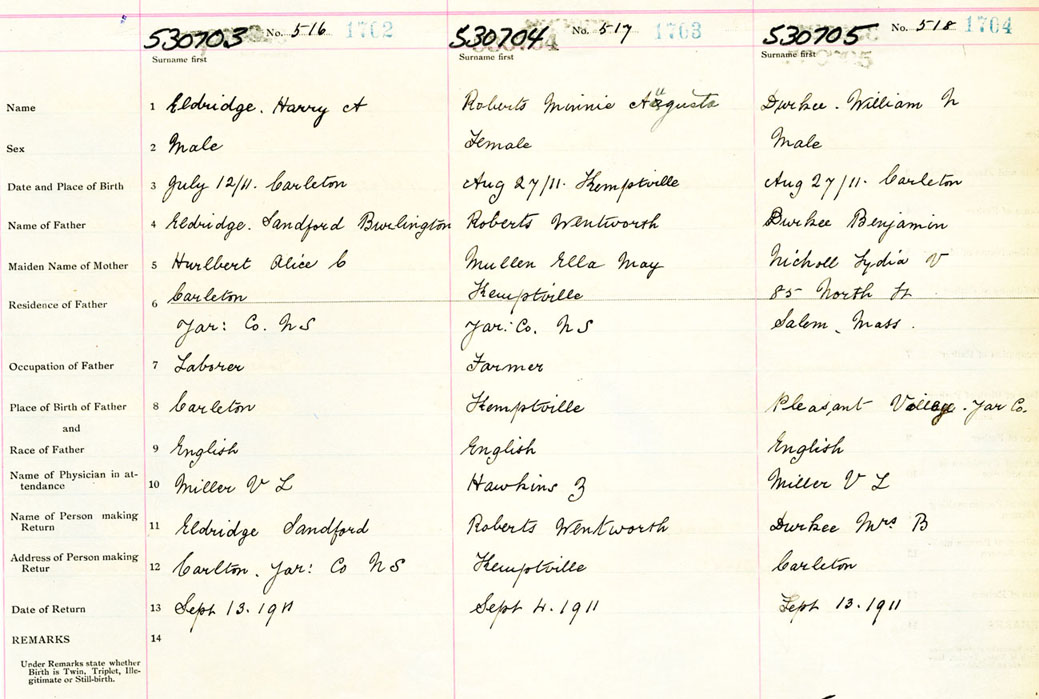 530703 No. 516 1702 530704 No. 517 1703 530705 No. 518 1704
Surname first Surname first Surname first
Name 1 Eldridge. Harry A Roberts Minnie Augusta Durkee. William N
Sex 2 Male Female Male
Date and Place of Birth 3 July 12/11. Carleton Aug 27/11. Kemptville Aug 27/11. Carleton
Name of Father 4 Eldridge. Sandford Burlington Roberts Wentworth Durkee Benjamin
Maiden Name of Mother 5 Hurlbert Alice C Mullen Ella May Nicholl Lydia V
Residence of Father 6 Carleton Kemptville 85 North St
Yar: Co. NS Yar: Co. NS Salem, Mass.
Occupation of Father 7 Laborer Farmer
Place of Birth of Father 8 Carleton Kemptville Pleasant Valley. Yar Co.
and
Race of Father 9 English English English
Name of Physician in at-
tendance 10 Miller V L Hawkins Z Miller V L
Name of Person making
Return 11 Eldridge Sandford Roberts Wentworth Durkee Mrs B
Address of Person making
Retur 12 Carlton. Yar: Co NS Kemptville Carleton
Date of Return 13 Sept 13. 1911 Sept 4. 1911 Sept 13. 1911
REMARKS 14
Under Remarks state whether
Birth is Twin, Triplet, Ille-
gitimate or Still-birth.